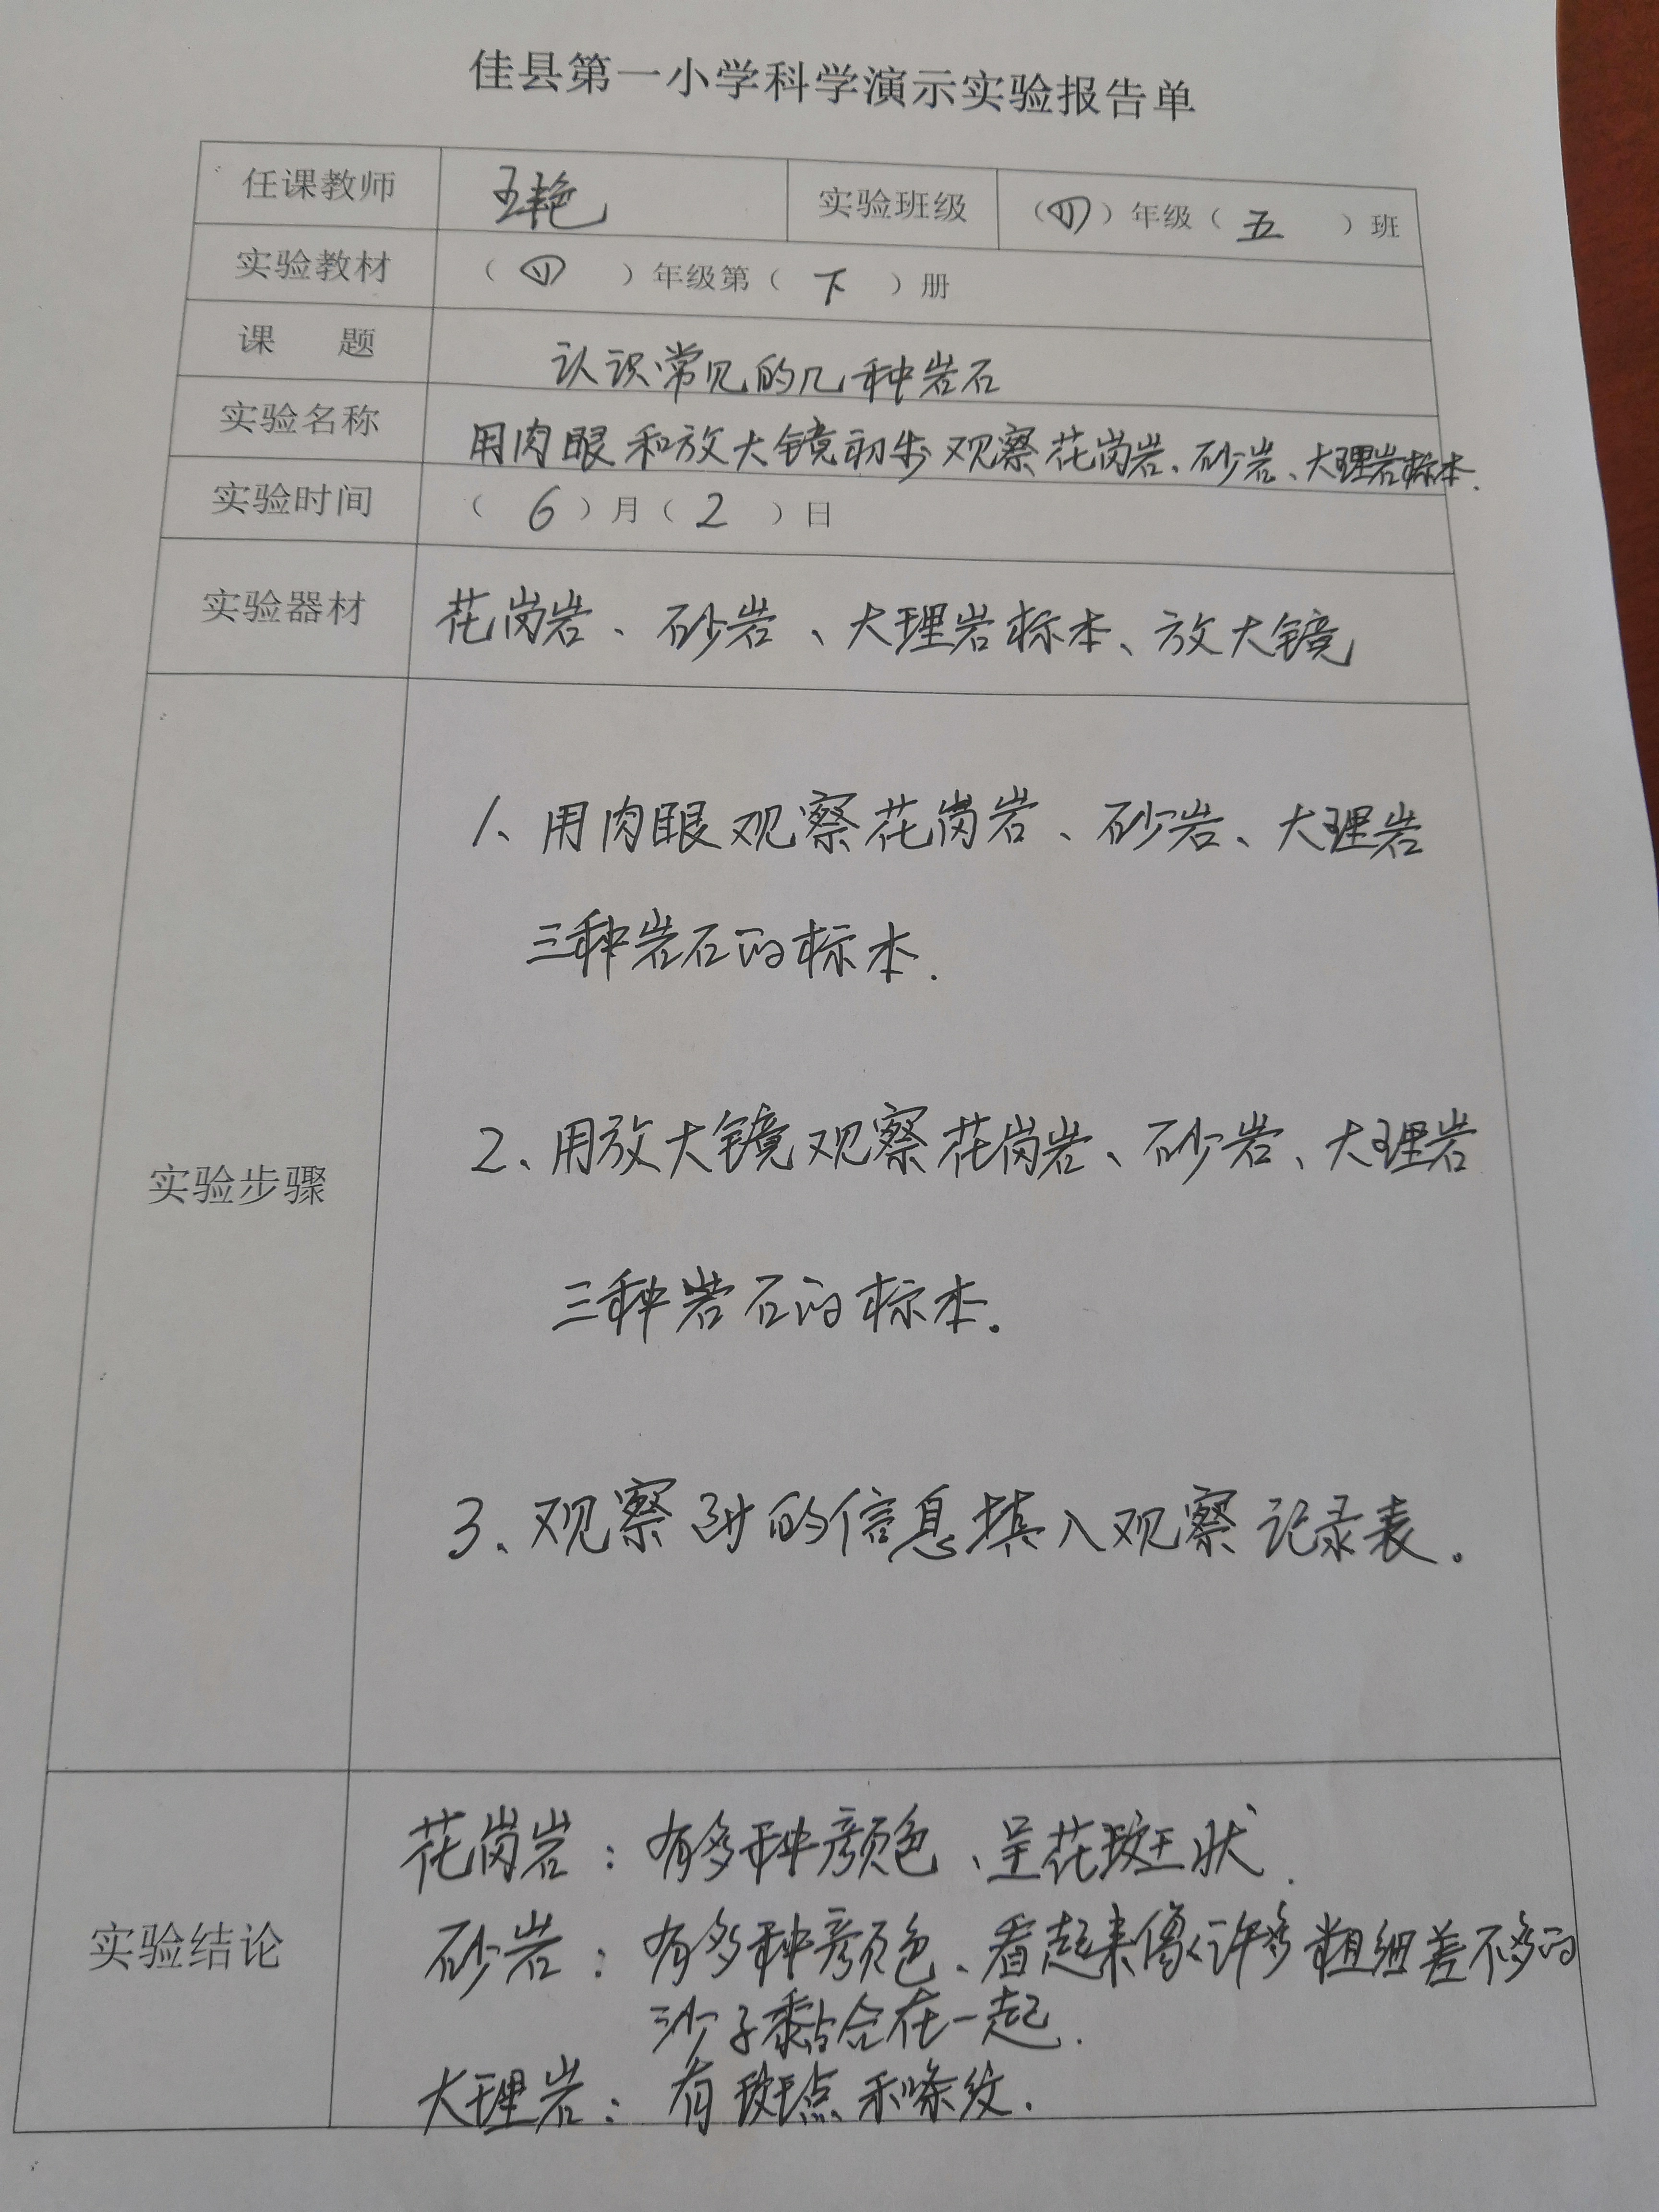 佳县第一小学科学演示实验报告单
任课教师 王艳 实验班级 （四）年级（五）班
实验教材 （四）年级第（下）册
课 题 认识常见的几种岩石
实验名称 用肉眼和放大镜初步观察花岗岩、砂岩、大理岩标本.
实验时间 （6）月（2）日
实验器材 花岗岩、砂岩、大理岩标本、放大镜
实验步骤
1、用肉眼观察花岗岩、砂岩、大理岩
三种岩石的标本.
2、用放大镜观察花岗岩、砂岩、大理岩
三种岩石的标本.
3、观察时的信息填入观察记录表。
实验结论
花岗岩：有多种颜色、呈花斑状.
砂岩：有多种颜色、看起来像许多粗细差不多的
沙子黏合在一起.
大理岩：有斑点和条纹.